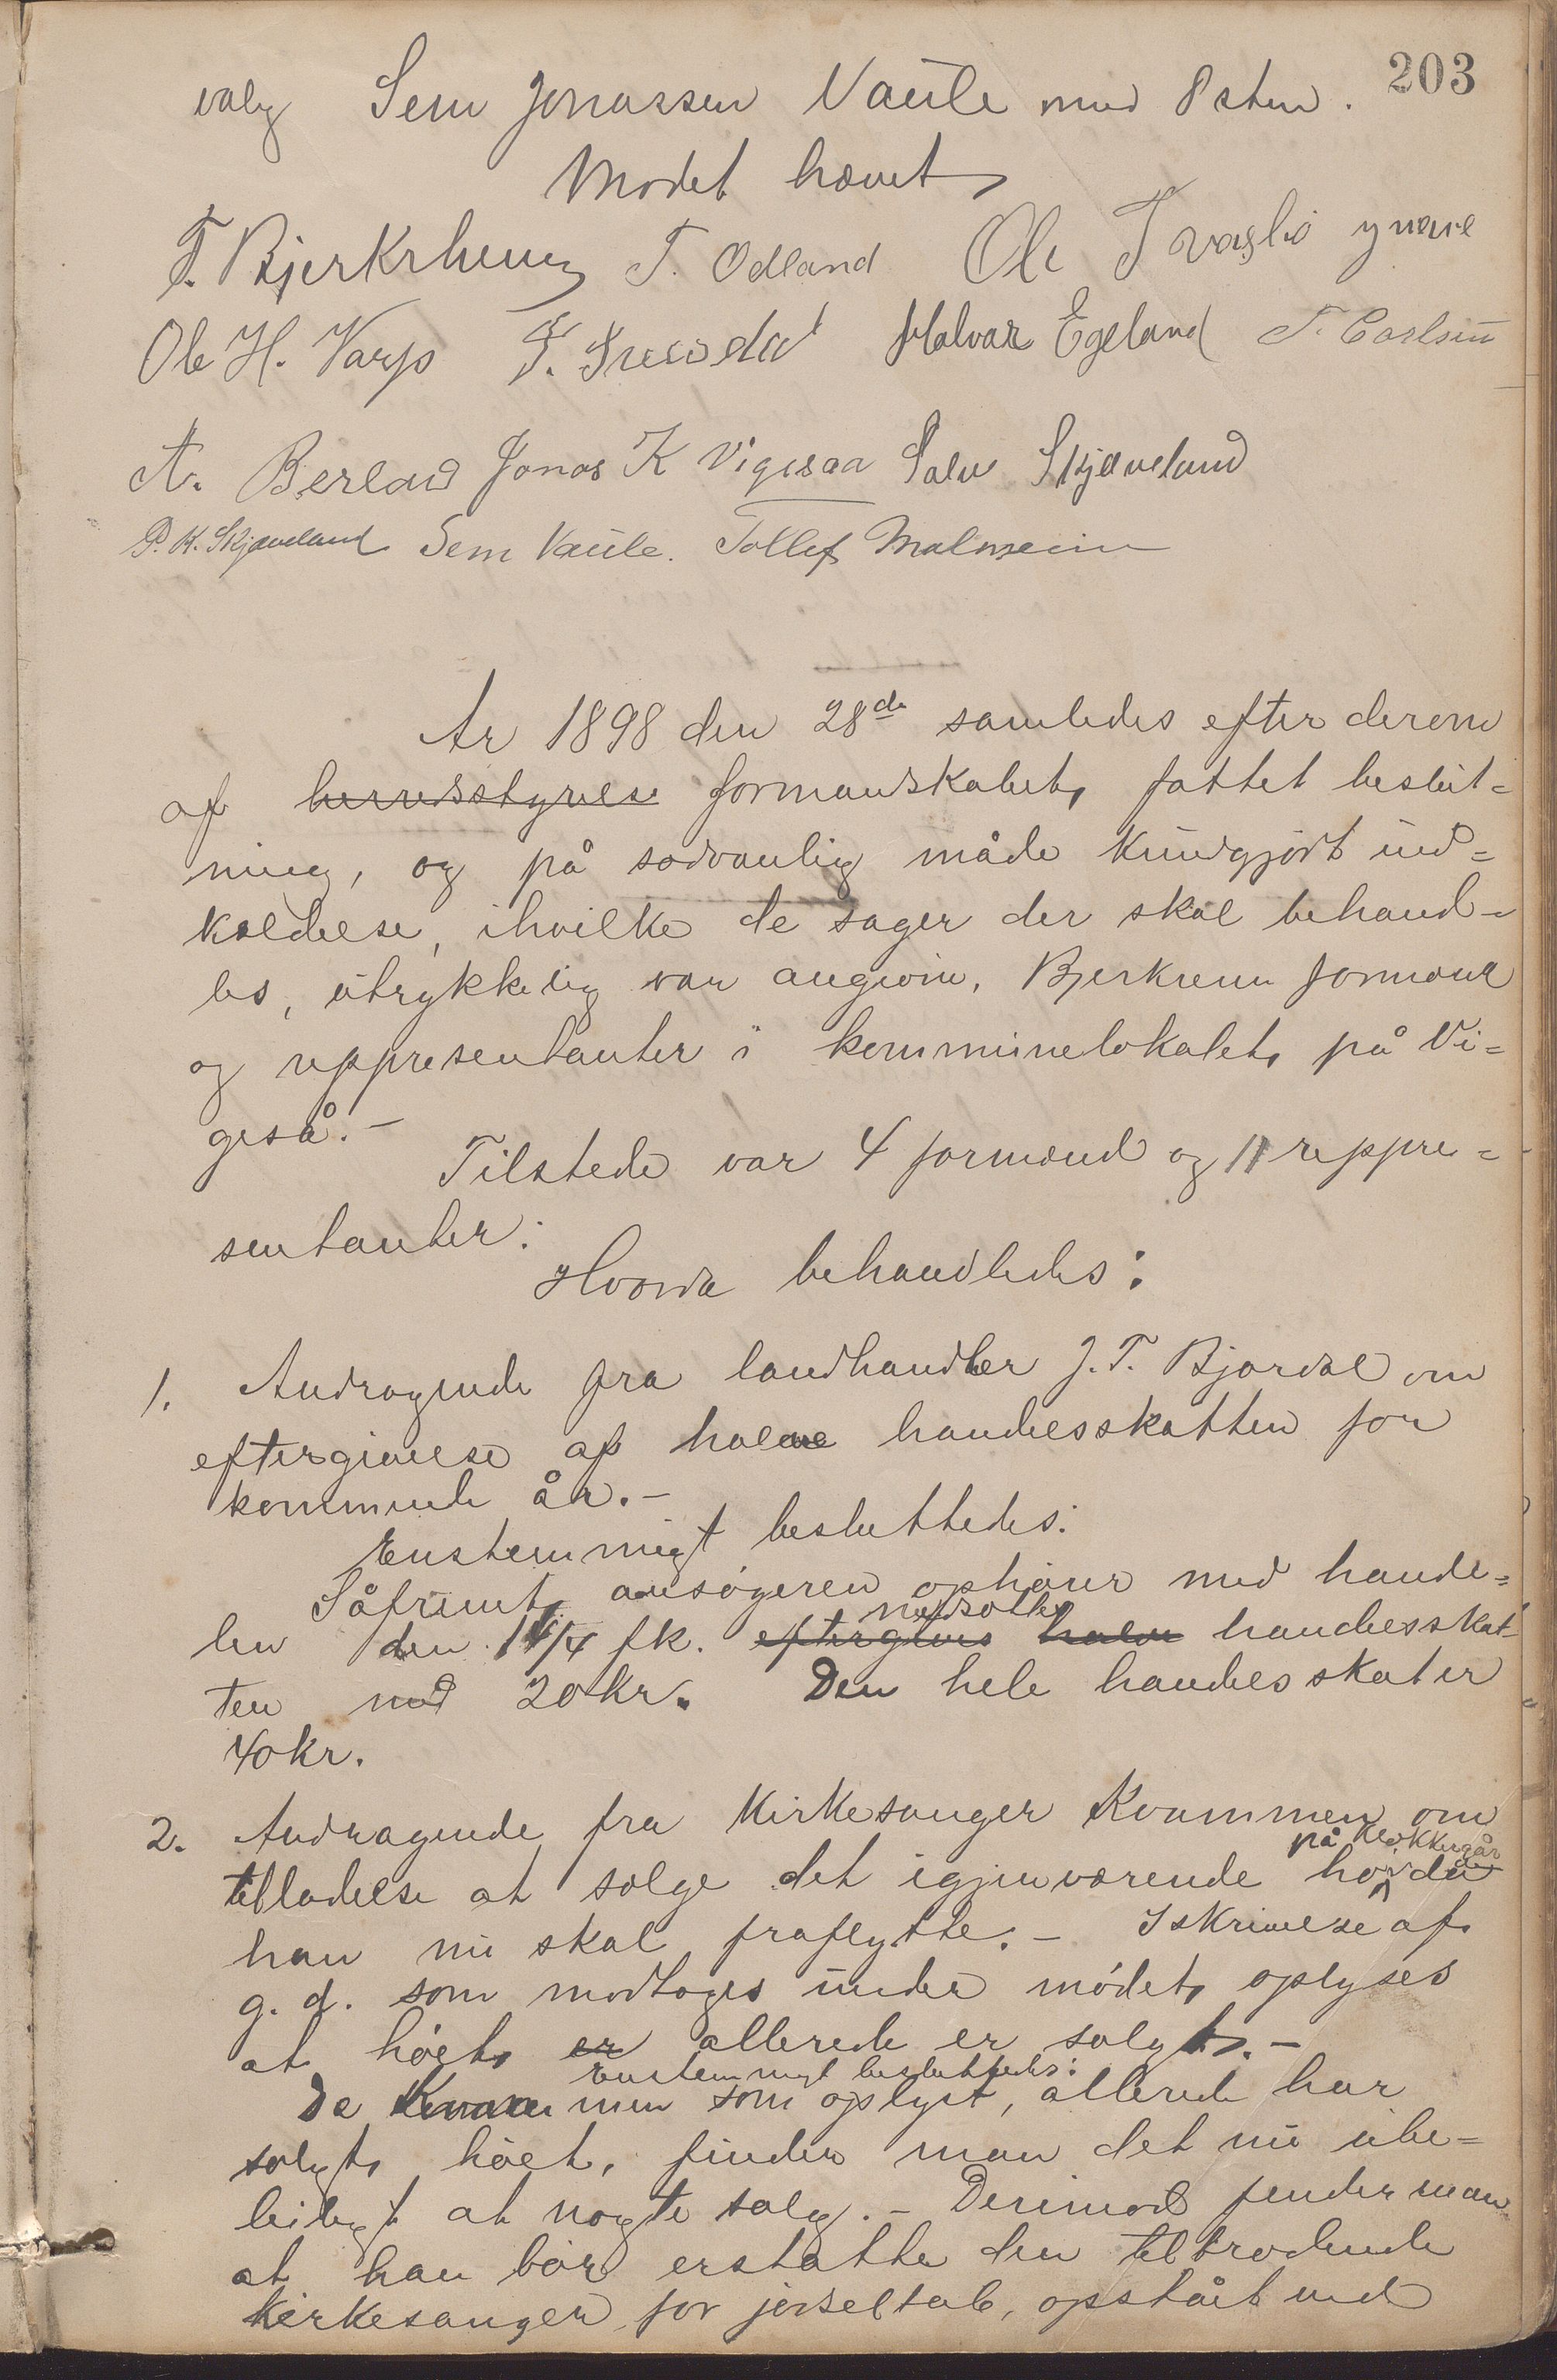 203
valg Sem Jonassen Vaule med 8 stem.
Mødet hævet
T. Bjerkrheim T. Odland Ole T
Ole H. Varp Halvar Egeland T. Carlsen
A. Berland Jonas K Vigesaa Salv Skjæveland
P. K. Skjæveland Sem Vaule. Tollef Malmein
År 1898 den 28de samledes efter derom
af herredsstyrelse formandskabet fattet beslut-
ning, og på sædvanlig måde kundgjort ind-
kaldelse, ihvilke de sager der skal behand-
les, utrykkelig var angivin, Bjerkreim formænd
og reppresentanter i kommunelokalet på Vi-
geså.-
Tilstede var 4 formænd og 11 reppre-
sentanter.
Hvorda behandledes:
1. Andragende fra landhandler J. T. Bjordal om
eftergivelse af halve handelsskatten for
kommende år.-
Enstemmigt besluttedes:
Såfremt ansøgeren ophører med hande-
nedsættes
len den 1/4 fk. eftergives halve handelsskat-
ten med 20 kr. Den hele handelsskat er
40 kr.
2. Andragende fra Kirkesanger Kvammen om
på klokkergår
tilladelse at sælge det igjenværende hø, da
han nu skal fraflytte.- I skrivelse af
g. d. som modtoges under mødet oplyses
at høet er allerede er solgt.-
Enstemmigt besluttedes:
Da Kvammen som oplyst, allerede har
solgt høet, finder man det nu ube-
leiligt at nægte salg.- Derimod finder man
at han bør erstatte den tiltrædende
kirkesanger for jødseltab, opstået ved